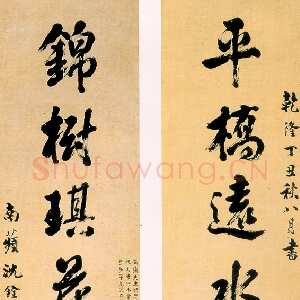 乾隆丁丑秋八月書
平橋遠水
錦樹琪花
南蘋沈銓
Shufawang.CN